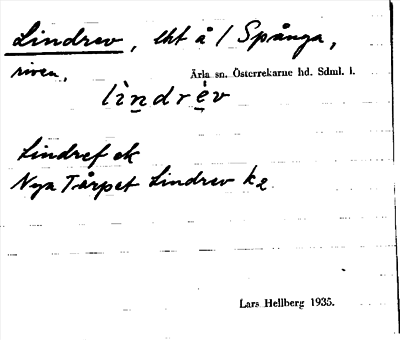 Lindrev, tht å / Spånga,
riven,
Ärla sn. Österrekarne hd. Sdml. l.
lìndrév
Lindref ek
Nya Tårpet Lindrev k2
Lars Hellberg 1935.